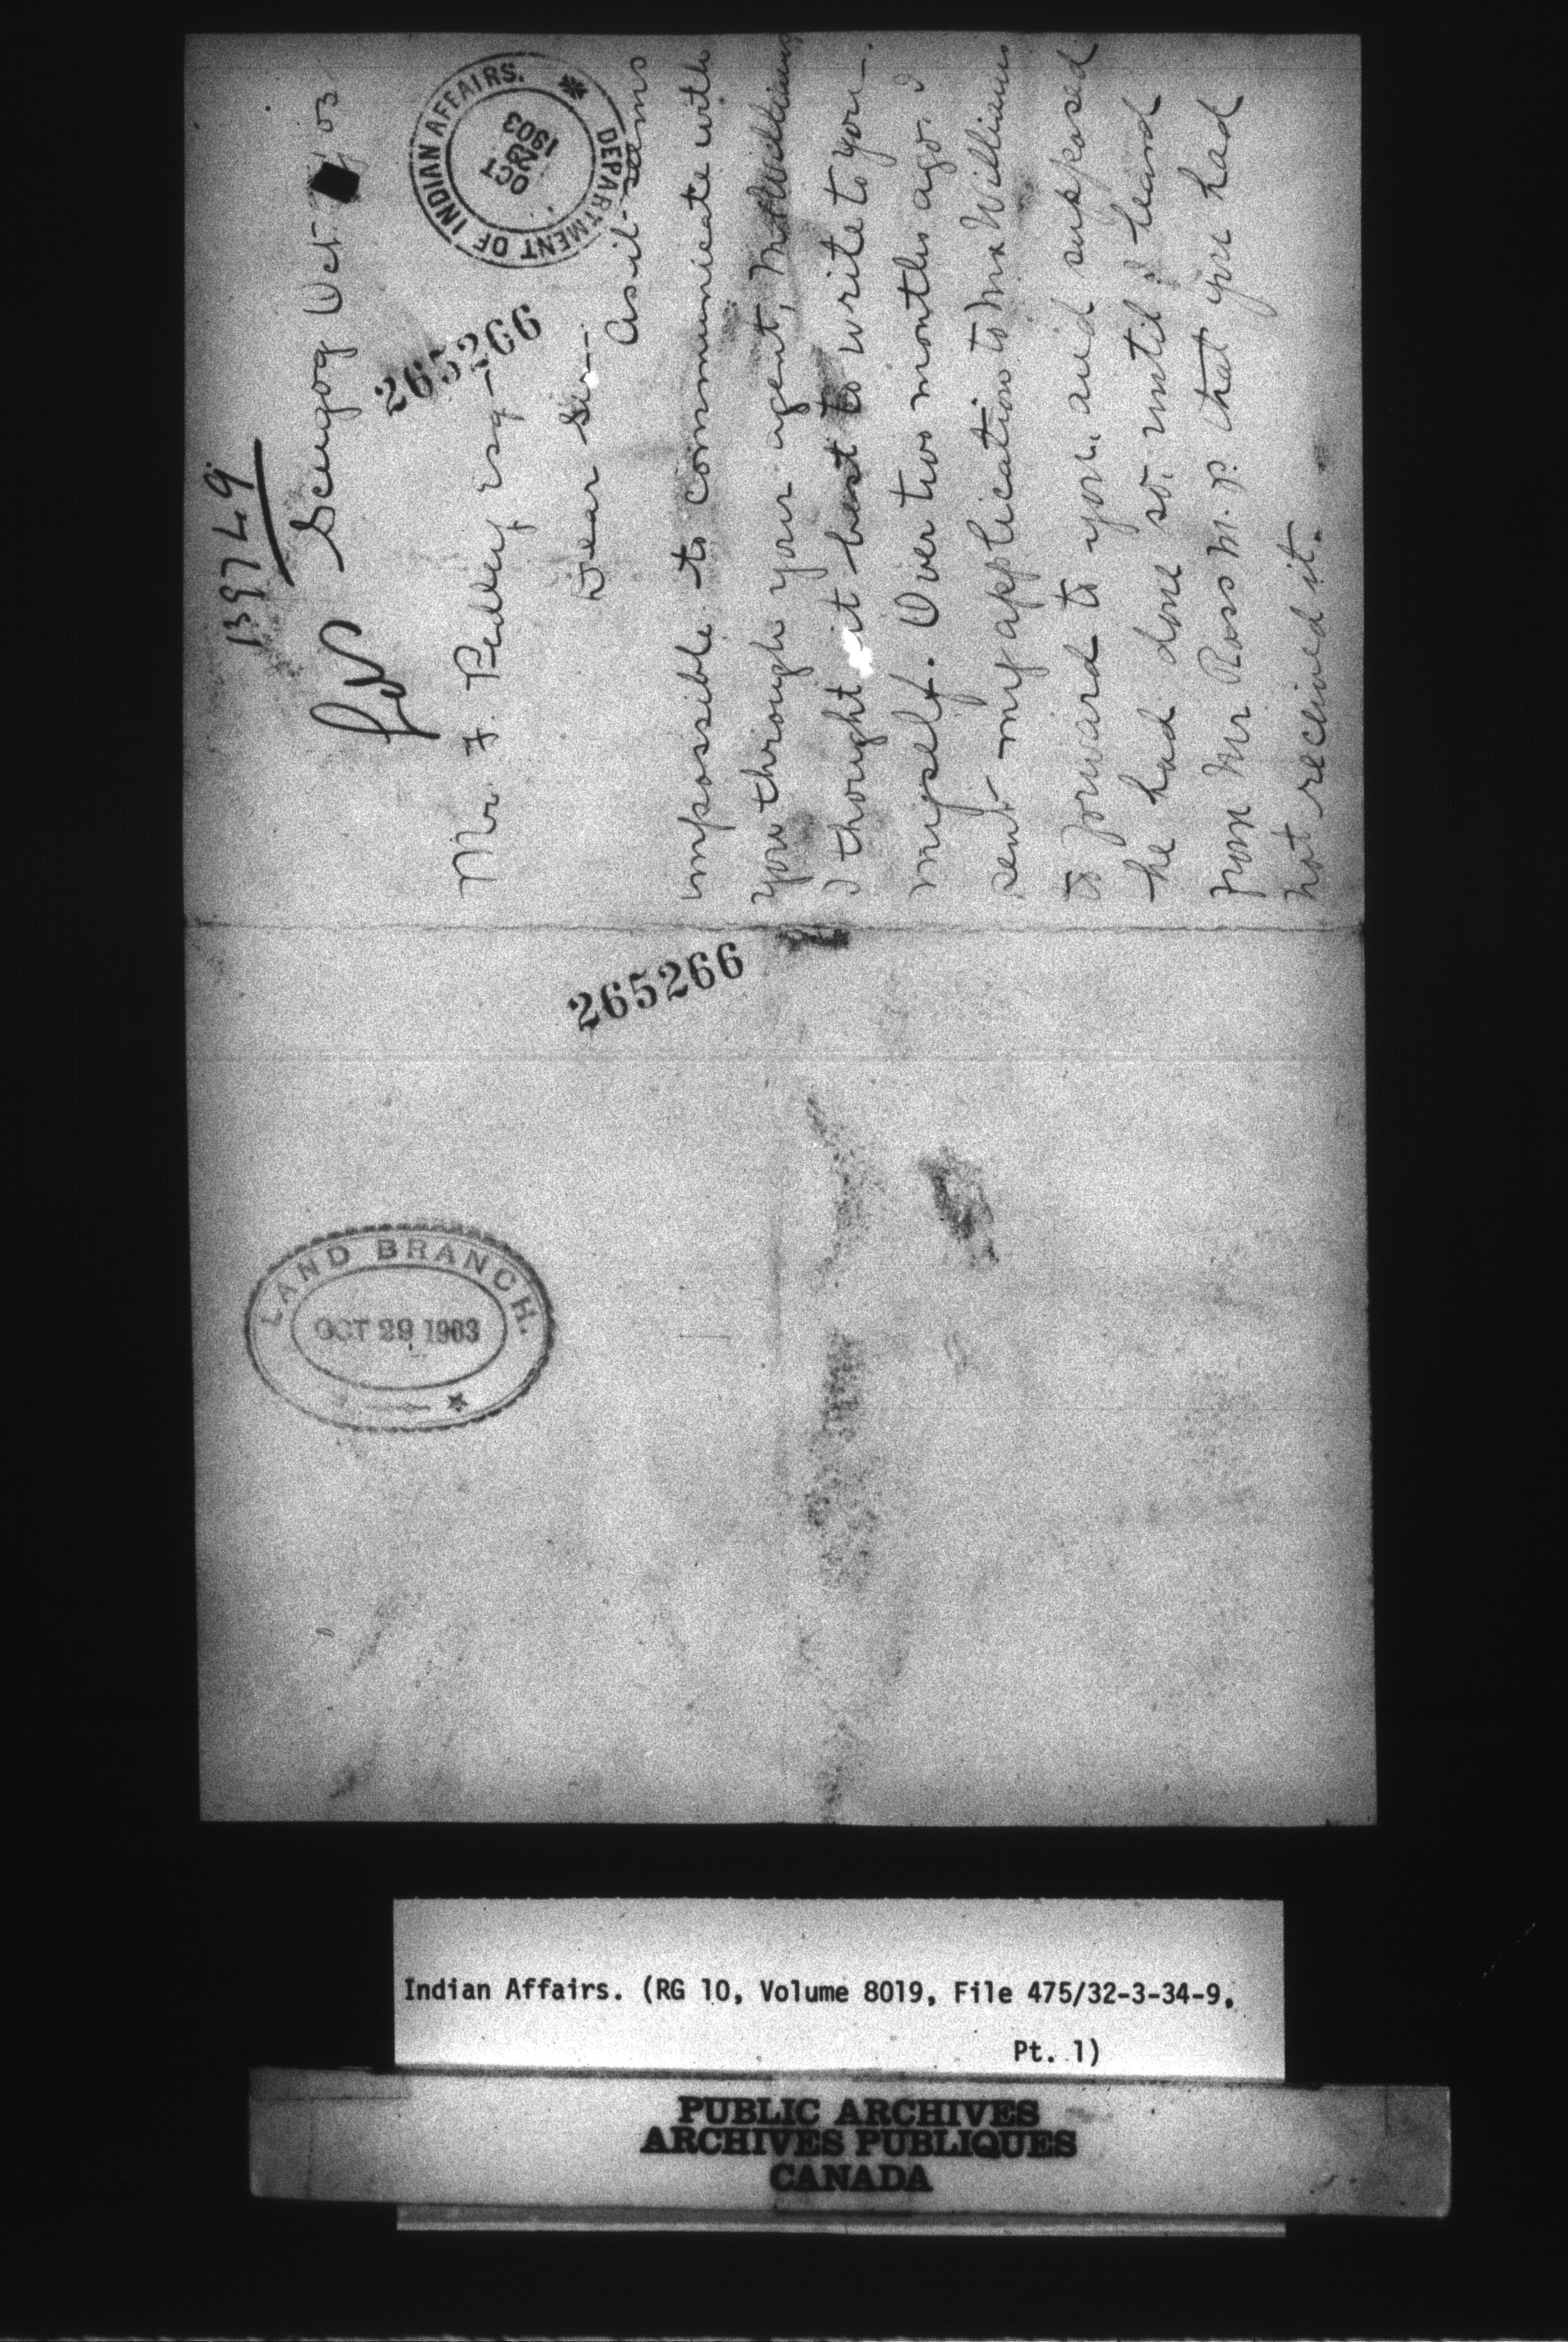 139749
Scugog Oct. /03
DEPARTMENT OF INDIAN AFFAIRS.
OCT
28
1903
265266
Mr. F. Pedley Esq-
Dear Sir-
As it seems
impossible to communicate with
you through your agent, Mr Williams
I thought it best to write to you-.
myself. Over two months ago I
sent my application to Mr Williams
to forward to you and supposed
he had done so until I heard
from Mr Ross M. P. that you had
not received it.
265266
LAND BRANCH.
OCT 29 1903
Indian Affairs. (RG 10, Volume 8019, File 475/32-3-34-9,
Pt. 1)
PUBLIC ARCHIVES
ARCHIVES PUBLIQUES
CANADA